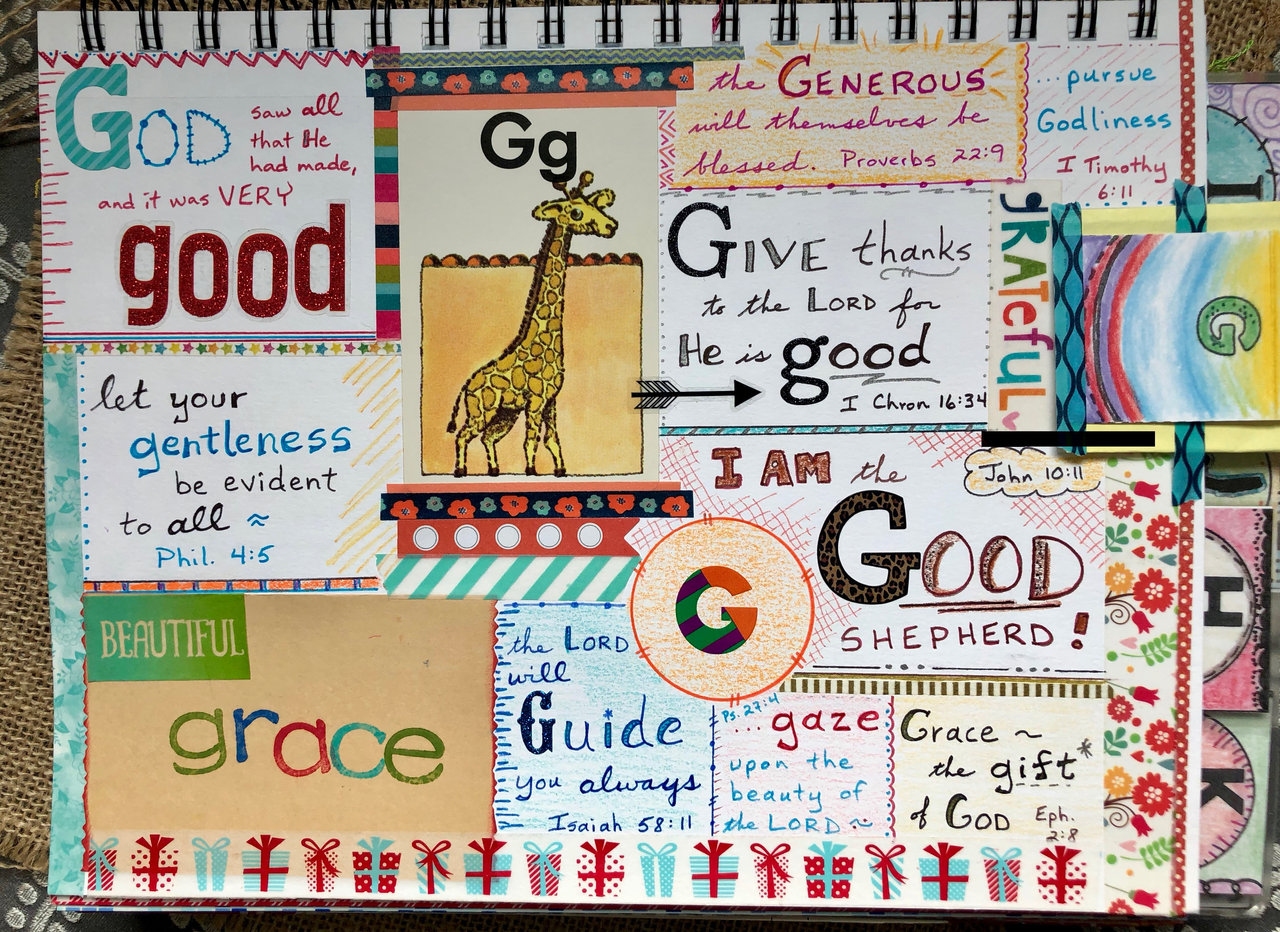 GOD saw all
that He
had made,
and it was VERY
good
Gg
the GENEROUS
will themselves be
blessed. Proverbs 22:9
...pursue
Godliness
I Timothy
6:11
GIVE thanks
to the LORD for
He is good
I Chron 16:34
gRATefuL
G
let your
gentleness
be evident
to all ~
Phil. 4:5
I AM the
John 10:11
GOOD
SHEPHERD!
G
BEAUTIFUL
grace
the LORD
will
Guide
you always
Isaiah 58:11
Ps. 27:4
...gaze
upon the
beauty of
the LORD ~
Grace ~
the gift*
of GOD
Eph.
2:8
I
J
H
K